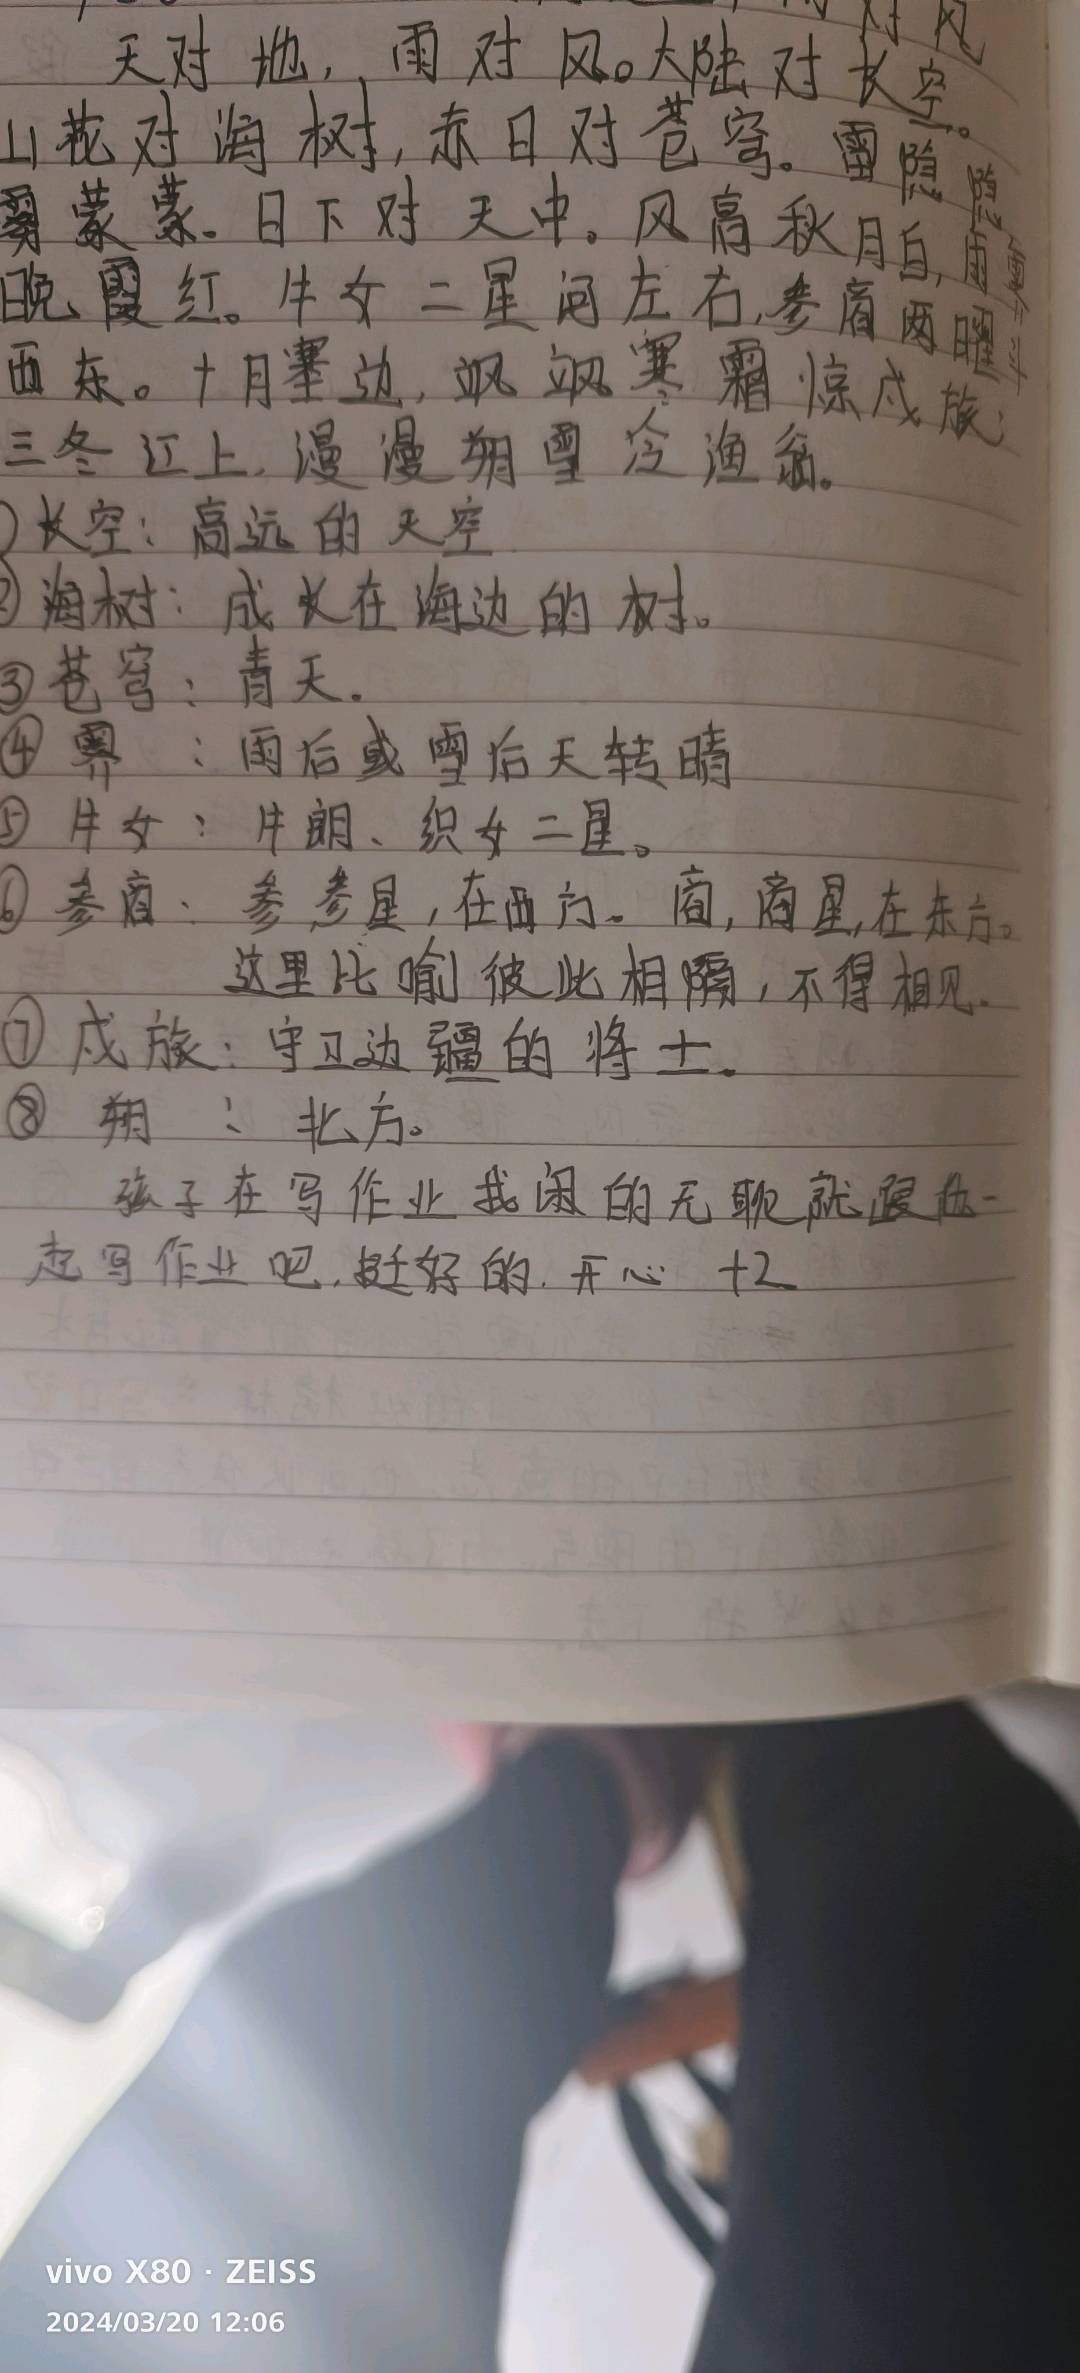 对风
天对地，雨对风。大陆对长空。
山花对海树，赤日对苍穹。雷隐隐
雾蒙蒙。日下对天中。风高秋月白，雨霁
晚霞红。牛女二星河左右，参商两曜
西东。十月塞边，飒飒寒霜惊戍旅；
三冬江上，漫漫朔雪冷渔翁。
长空：高远的天空
②海树：成长在海边的树。
③苍穹：青天．
④霁：雨后或雪后天转晴
⑤牛女：牛朗、织女二星。
⑥参商：参参星，在西方。商，商星，在东方。
这里比喻彼此相隔，不得相见．
⑦戍旅：守卫边疆的将士．
⑧朔：北方。
孩子在写作业我闲的无聊就跟他一
起写作业吧．挺好的．开心 +2
vivo X80 · ZEISS
2024/03/20 12:06